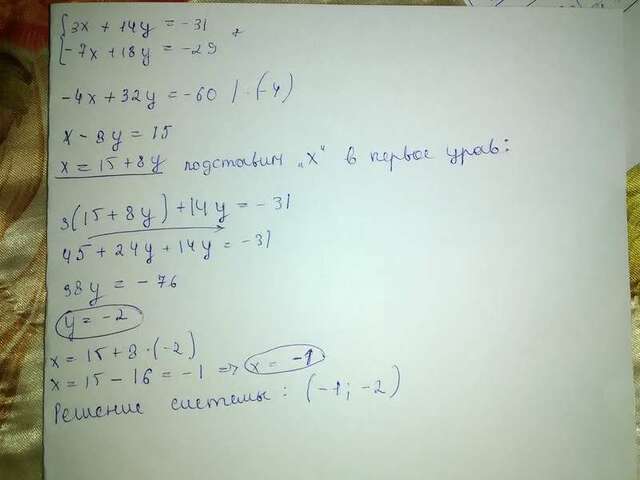 {3x + 14y = -31
{-7x + 18y = -29 +
-4x + 32y = -60 | · (-4)
x - 8y = 15
x = 15 + 8y подставим „x" в первое урав:
3(15 + 8y) + 14y = -31
45 + 24y + 14y = -31
38y = -76
y = -2
x = 15 + 8 · (-2)
x = 15 - 16 = -1 => x = -1
Решение системы: (-1; -2)